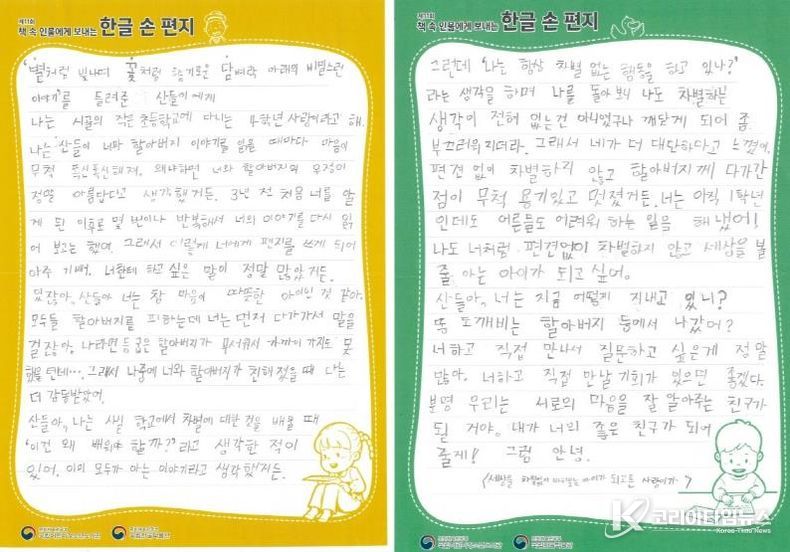 제11회
책 속 인물에게 보내는 한글 손 편지
'별처럼 빛나며 꽃처럼 향기로운 담벼락 아래의 비밀스런
이야기'를 들려준 산들이에게
나는 시골의 작은 초등학교에 다니는 4학년 사랑이라고 해.
나는 산들이 너와 할아버지 이야기를 읽을 때마다 마음이
무척 푹신푹신해져. 왜냐하면 너와 할아버지의 우정이
정말 아름답다고 생각했거든. 3년 전 처음 너를 알
게 된 이후로 몇 번이나 반복해서 너의 이야기를 다시 읽
어 보고는 했어. 그래서 이렇게 너에게 편지를 쓰게 되어
아주 기뻐. 너한테 하고 싶은 말이 정말 많았거든.
있잖아, 산들아 너는 참 마음이 따뜻한 아이인 것 같아.
모두들 할아버지를 피하는데 너는 먼저 다가가서 말을
걸잖아. 나라면 등 굽은 할아버지가 무서워서 가까이 가지도 못
했을텐데…. 그래서 나중에 너와 할아버지가 친해졌을 때 나는
더 감동받았어.
산들아, 나는 사실 학교에서 차별에 대한 것을 배울 때
'이건 왜 배워야 할까?'라고 생각한 적이
있어. 이미 모두가 아는 이야기라고 생각했거든.
제11회
책 속 인물에게 보내는 한글 손 편지
그런데 '나는 항상 차별 없는 행동을 하고 있나?'
라는 생각을 하며 나를 돌아 보니 나도 차별하는
생각이 전혀 없는건 아니었구나 깨닫게 되어 좀
부끄러워지더라. 그래서 네가 더 대단하다고 느꼈어.
편견 없이 차별하지 않고 할아버지께 다가간
점이 무척 용기있고 멋졌거든. 너는 아직 1학년
인데도 어른들도 어려워 하는 일을 해냈어!
나도 너처럼 편견없이 차별하지 않고 세상을 볼
줄 아는 아이가 되고 싶어.
산들아, 너는 지금 어떻게 지내고 있니?
또 도깨비는 할아버지 등에서 나갔어?
너하고 직접 만나서 질문하고 싶은게 정말
많아. 너하고 직접 만날 기회가 있으면 좋겠다.
분명 우리는 서로의 마음을 잘 알아주는 친구가
될 거야. 내가 너의 좋은 친구가 되어
줄게! 그럼 안녕.
<세상을 차별없이 바라보는 아이가 되고픈 사랑이가>
코리아타임뉴스
Korea Time News